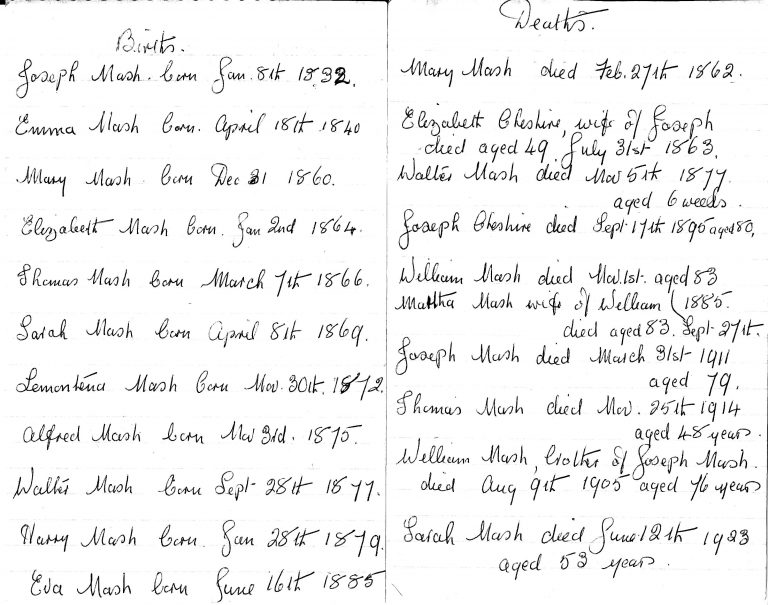 Births.
Joseph Mash. born Jan. 8th 1832.
Emma Mash born. April 18th 1840
Mary Mash born Dec 31 1860.
Elizabeth Mash born. Jan 2nd 1864.
Thomas Mash born March 7th 1866.
Sarah Mash born April 8th 1869.
Lemontena Mash born Nov. 30th. 1872.
Alfred Mash born Nov 3rd. 1875.
Walter Mash born Sept 28th 1877.
Harry Mash born. Jan 28th 1879.
Eva Mash born June 16th 1885
Deaths.
Mary Mash died Feb. 27th 1862.
Elizabeth Cheshire, wife of Joseph
died aged 49 July 31st 1863.
Walter Mash died Nov 5th 1877.
aged 6 weeks.
Joseph Cheshire died Sept 17th 1895 aged 80.
William Mash died Nov. 1st. aged 83
Martha Mash wife of William ( 1885.
died aged 83. Sept 27th.
Joseph Mash died March 31st 1911
aged 79.
Thomas Mash died Nov. 25th 1914
aged 48 years.
William Mash, brother of Joseph Mash.
died Aug 9th 1905 aged 76 years
Sarah Mash died June 12th 1923
aged 53 years.